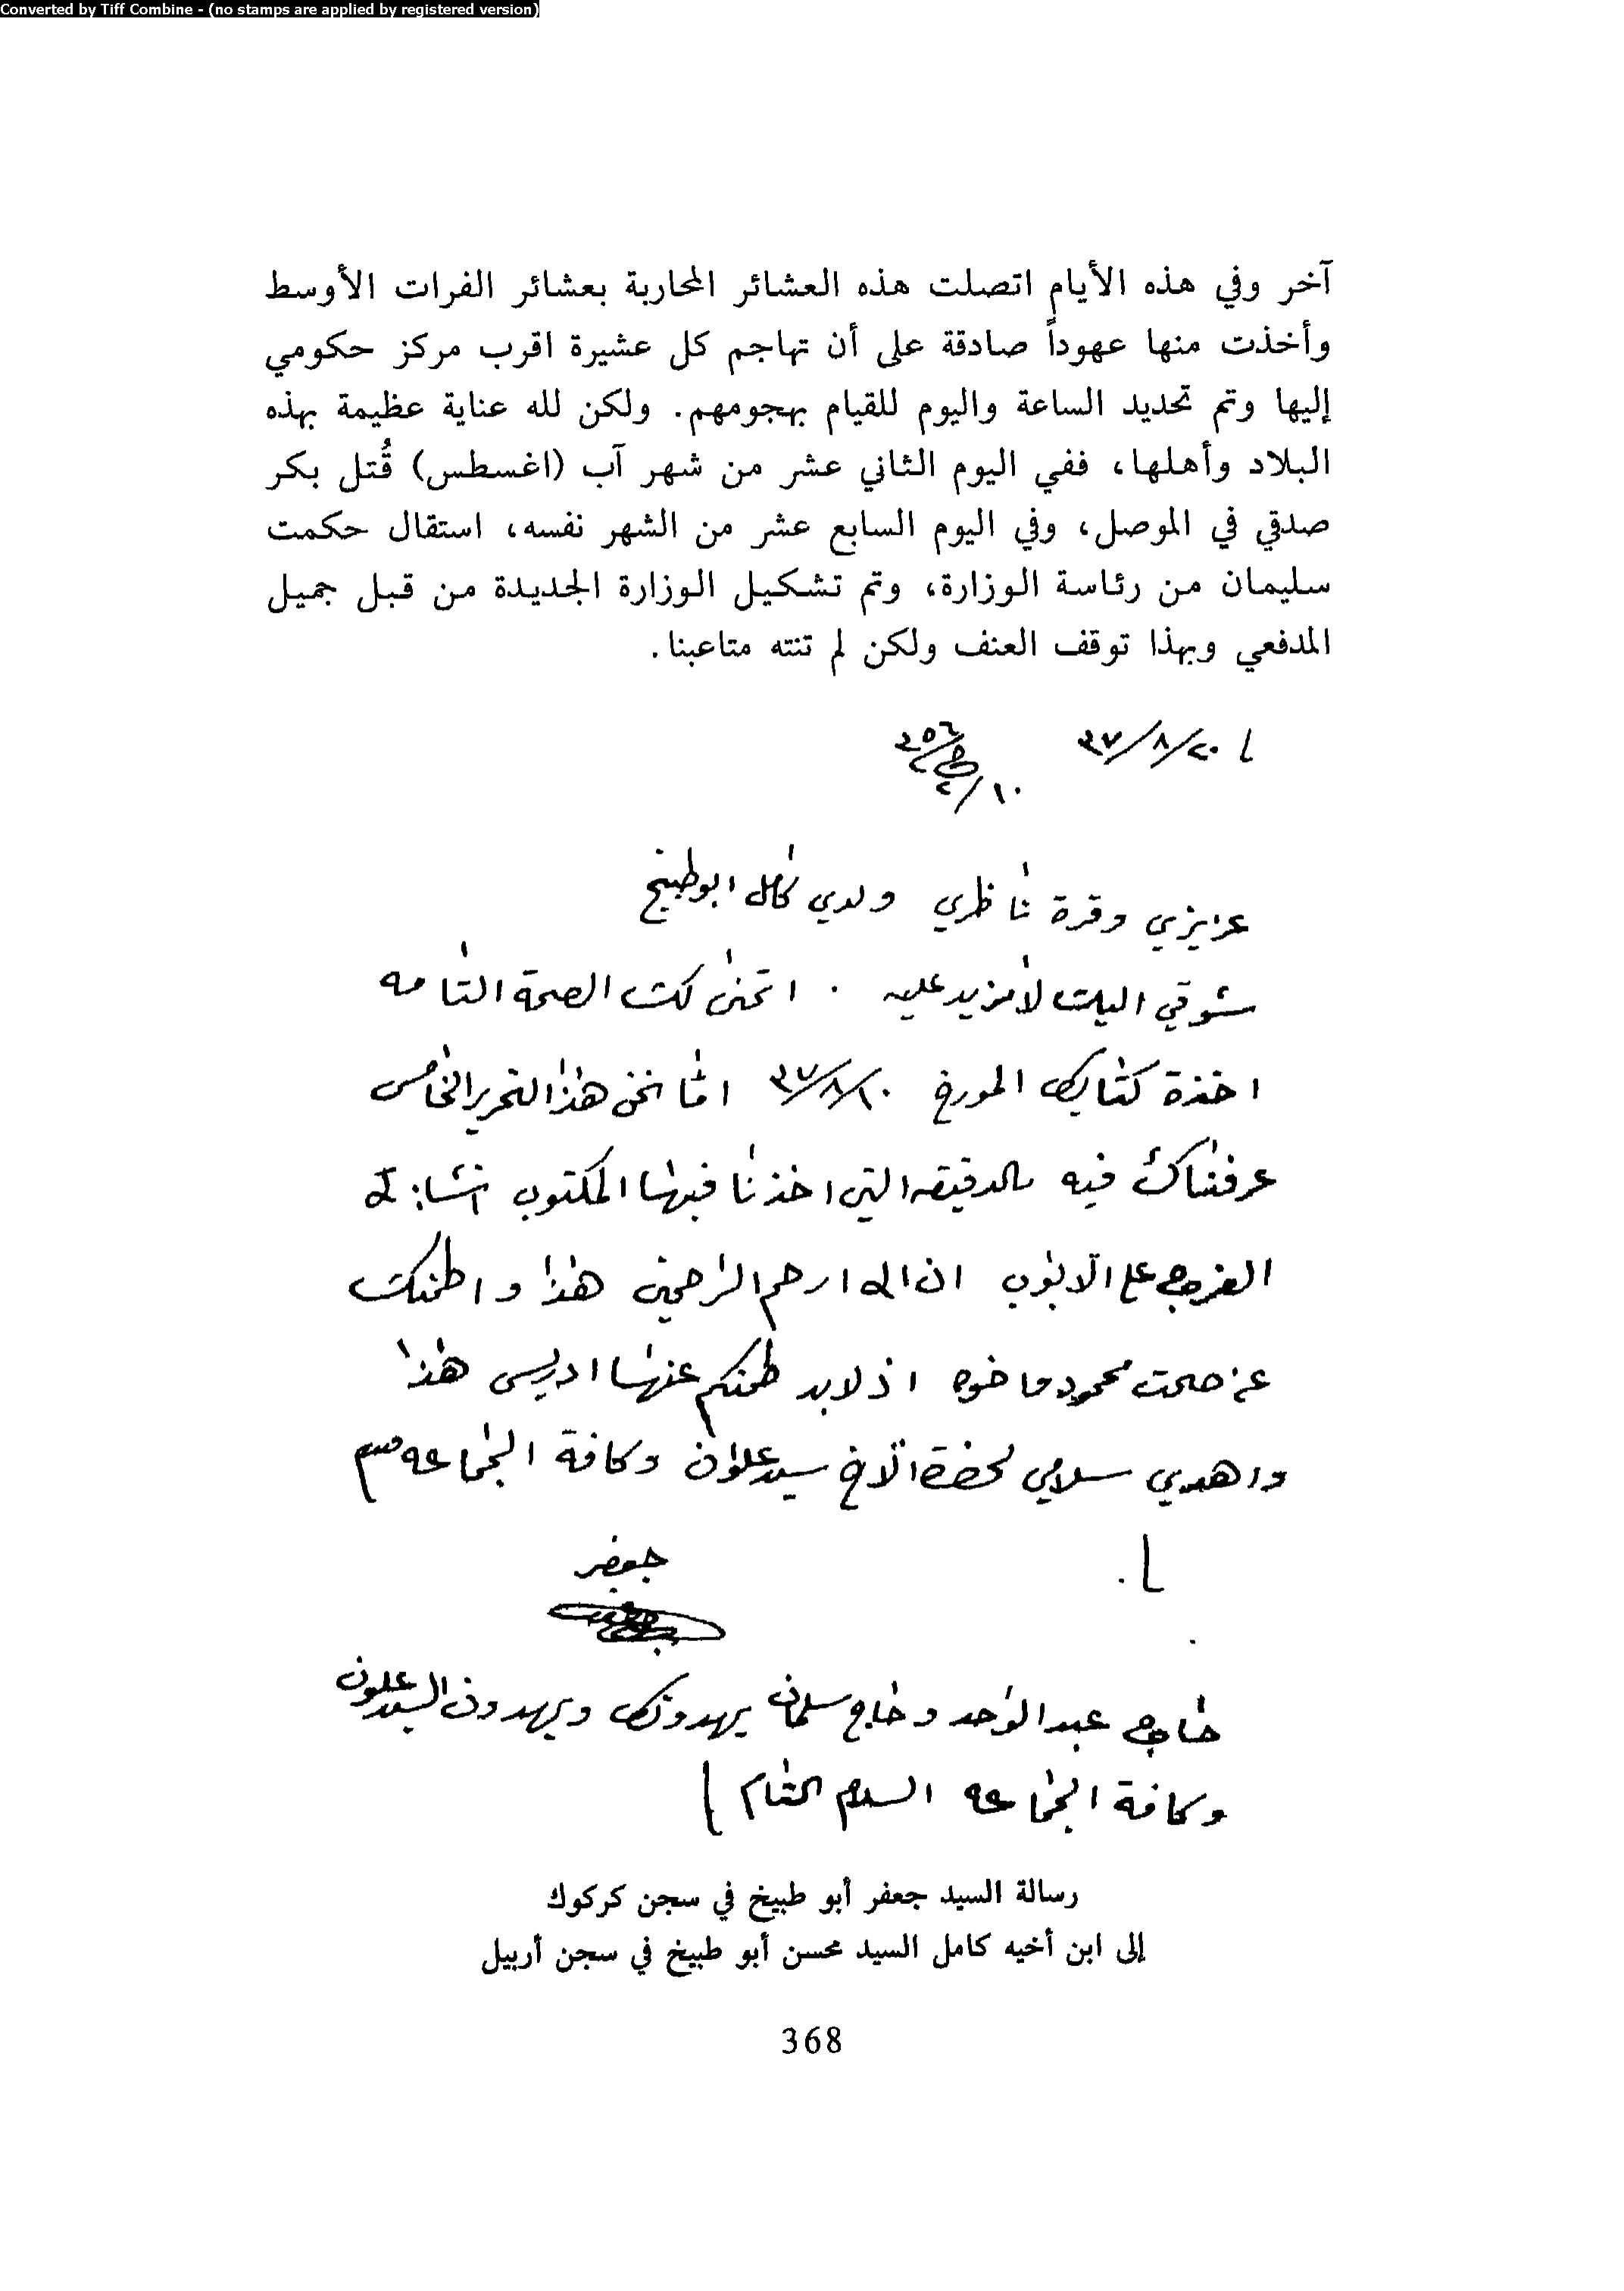 Converted by Tiff Combine - (no stamps are applied by registered version)
آخر وفي هذه الأيام اتصلت هذه العشائر المحاربة بعشائر الفرات الأوسط
وأخذت منها عهوداً صادقة على أن تهاجم كل عشيرة اقرب مركز حكومي
إليها وتم تحديد الساعة واليوم للقيام بهجومهم. ولكن لله عناية عظيمة بهذه
البلاد وأهلها، ففي اليوم الثاني عشر من شهر آب (اغسطس) قُتل بكر
صدقي في الموصل، وفي اليوم السابع عشر من الشهر نفسه، استقال حكمت
سليمان من رئاسة الوزارة، وتم تشكيل الوزارة الجديدة من قبل جميل
المدفعي وبهذا توقف العنف ولكن لم تنته متاعبنا.
٣٧/٨/٢٠
عزيزي وقرة ناظري ولدي كامل ابوطبيخ
شوقي اليك لامزيد عليه . اتمنى لك الصحة التامه
اخذة كتابك المورخ ٣٧/٨/١٠ امّا نحن هذا التحرير الخامس
عرفناك فيه بالدقيقه التي اخذنا فيها المكتوب
الفروج على الابواب ان الله ارحم الراحمين هذا واطمنك
عن صحت محمود واخوه اذ لابد طمنكم عنها ادريس هذا
واهدي سلامي لحضرة الاخ سيد علوان وكافة الجماعه
جعفر
حاج عبد الواحد وحاج سلمان يهدونك ويهدون السيد علوان
وكافة الجماعه السلام التام
رسالة السيد جعفر أبو طبيخ في سجن كركوك
إلى ابن أخيه كامل السيد محسن أبو طبيخ في سجن أربيل
368